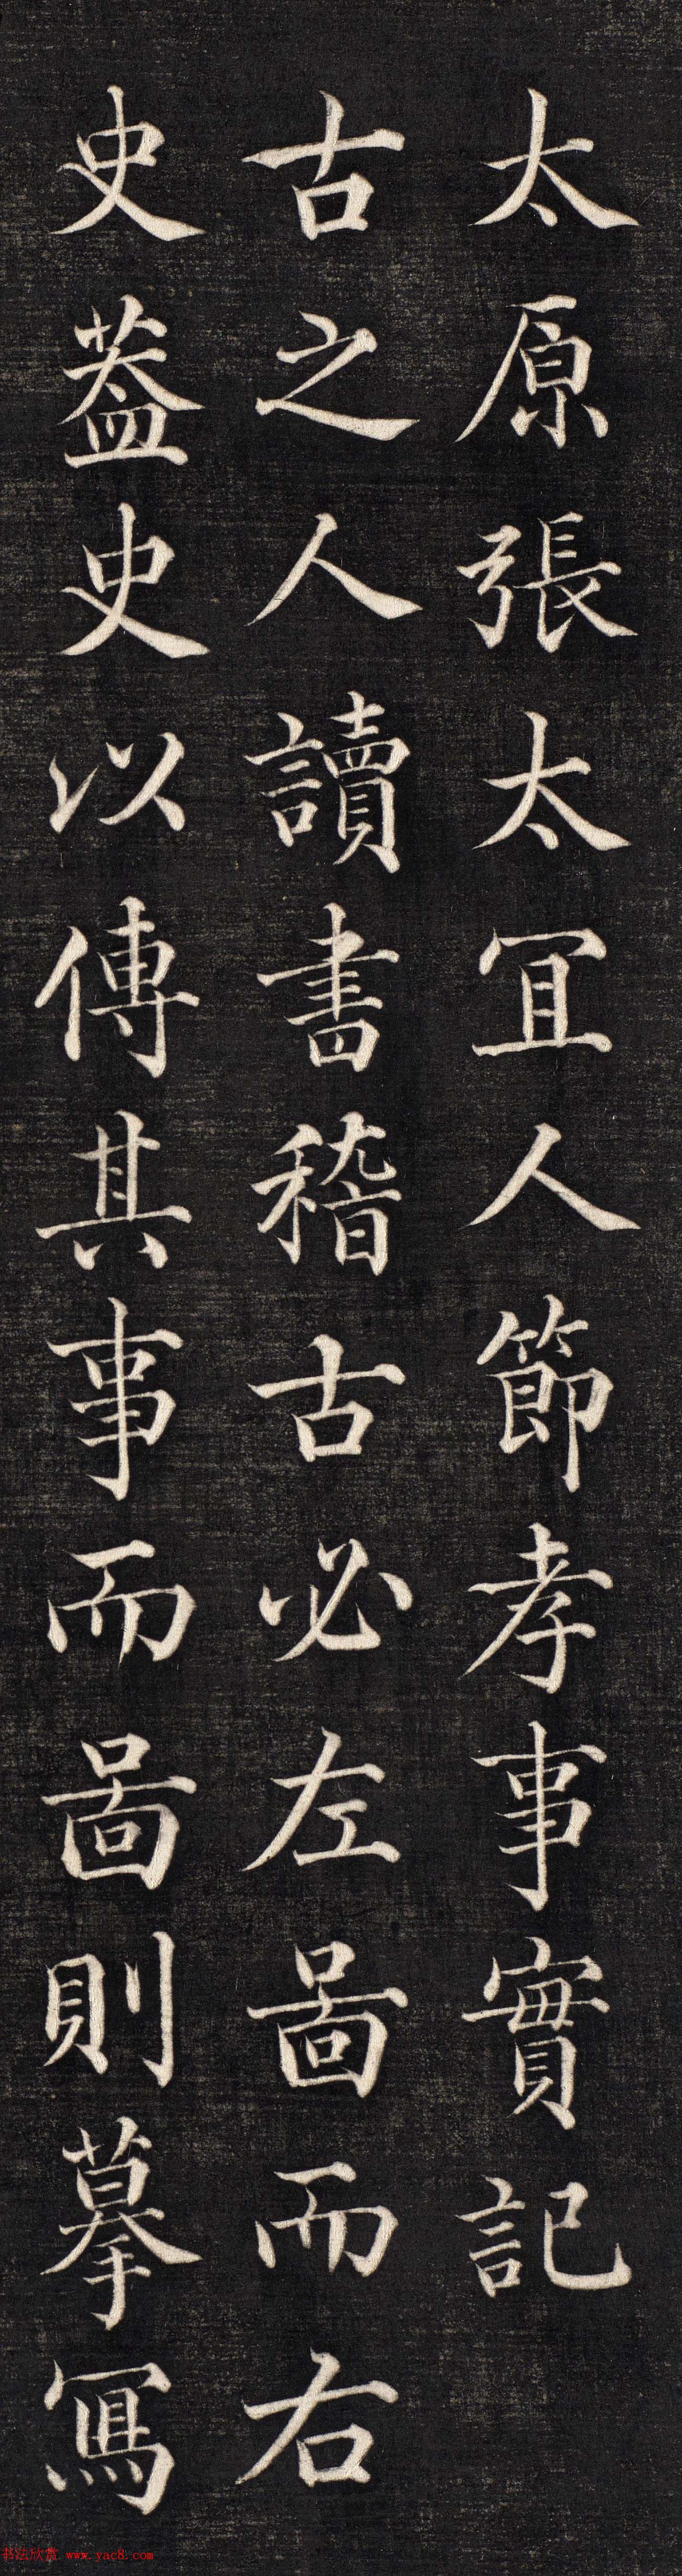 太原張太冝人節孝事實記
古之人讀書稽古必左啚而右
史葢史以傳其事而啚則摹寫
书法欣赏 www.yac8.com